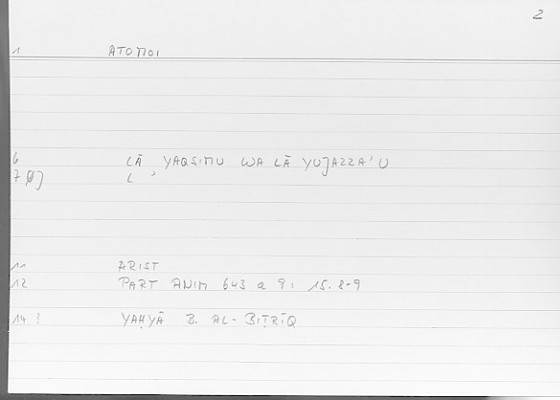 2
1 ATOMOI
6 LĀ YAQSIMU WA LĀ YUJAZZA'U
7 L
11 ARIST
12 PART ANIM 643 a 9: 15.8-9
14 YAḤYĀ B. AL-BIṬRĪQ